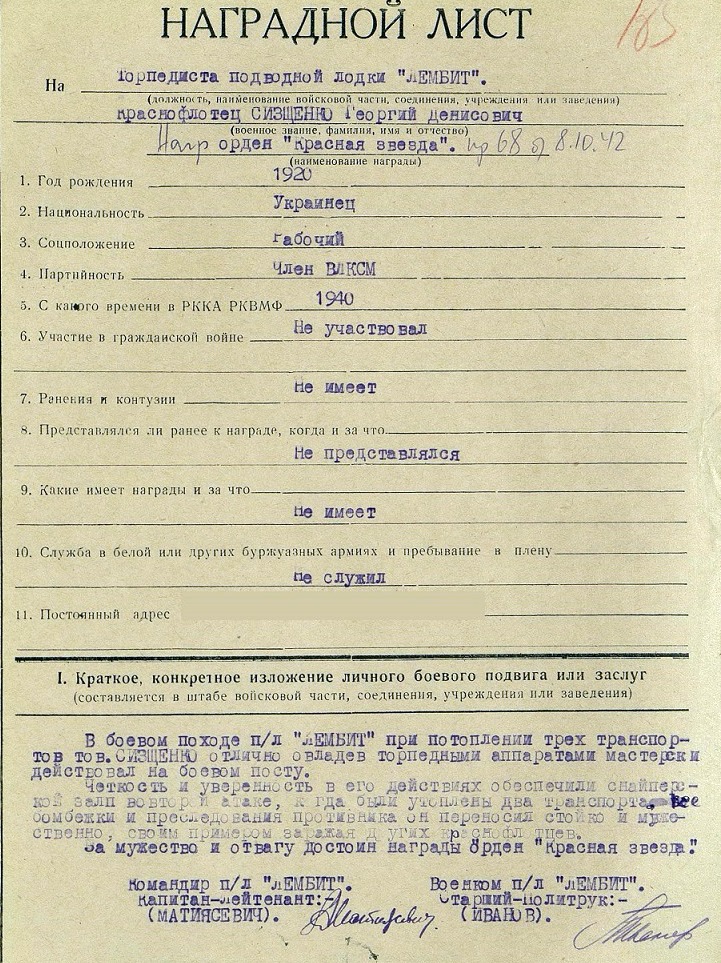 185
НАГРАДНОЙ ЛИСТ
На Торпедиста подводной лодки "ЛЕМБИТ".
(должность, наименование войсковой части, соединения, учреждения или заведения)
Краснофлотец СИЗЩЕНКО Георгий Денисович
(военное звание, фамилия, имя и отчество)
Нагр орден "Красная звезда". пр 68 от 8.10.42
(наименование награды)
1. Год рождения 1920
2. Национальность Украинец
3. Соцположение Рабочий
4. Партийность Член ВЛКСМ
5. С какого времени в РККА РКВМФ 1940
6. Участие в гражданской войне Не участвовал
7. Ранения и контузии Не имеет
8. Представлялся ли ранее к награде, когда и за что
Не представлялся
9. Какие имеет награды и за что
Не имеет
10. Служба в белой или других буржуазных армиях и пребывание в плену
Не служил
11. Постоянный адрес
I. Краткое, конкретное изложение личного боевого подвига или заслуг
(составляется в штабе войсковой части, соединения, учреждения или заведения)
В боевом походе п/л "ЛЕМБИТ" при потоплении трех транспор-
тов тов. СИЗЩЕНКО отлично овладев торпедными аппаратами мастерски
действовал на боевом посту.
Четкость и уверенность в его действиях обеспечили снайперс-
кой залп во второй атаке, когда были утоплены два транспорта, все
бомбежки и преследования противника он переносил стойко и муже-
ственно, своим примером заражая других краснофлотцев.
За мужество и отвагу достоин награды Орден "Красная звезда".
Командир п/л "ЛЕМБИТ". Военком п/л "ЛЕМБИТ".
Капитан-лейтенант:- Старший-Политрук:-
(МАТИЯСЕВИЧ). Матиясевич (ИВАНОВ).